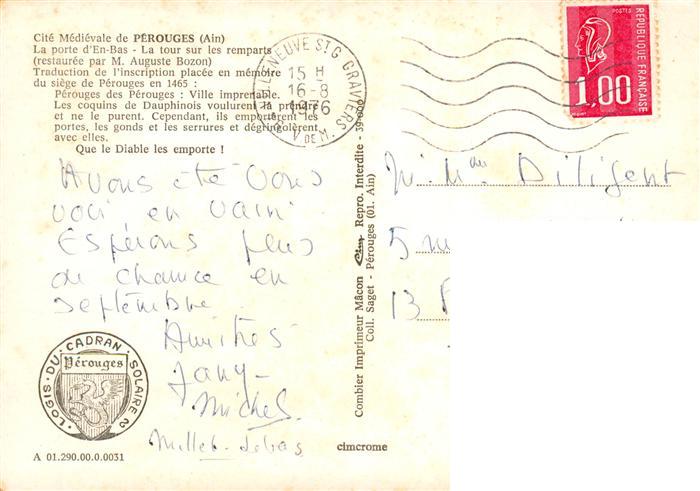 Cité Médiévale de PÉROUGES (Ain)
La porte d'En-Bas - La tour sur les remparts
(restaurée par M. Auguste Bozon)
Traduction de l'inscription placée en mémoire
du siège de Pérouges en 1465 :
Pérouges des Pérouges : Ville imprenable.
Les coquins de Dauphinois voulurent la prendre
et ne le purent. Cependant, ils emportèrent les
portes, les gonds et les serrures et dégringolèrent
avec elles.
Que le Diable les emporte !
VILLENEUVE ST G
15 H
16-8
1976
V. DE M.
POSTES
REPUBLIQUE FRANÇAISE
1,00
Avons été vous
voir en vain
Espérons plus
de chance en
septembre
Amitiés
Jany
Michel
Millet-
LOGIS DU CADRAN SOLAIRE
Pérouges
A 01.290.00.0.0031
Combier Imprimeur Mâcon Cim Repro. Interdite
Coll. Saget - Pérouges (01. Ain)
cimcrome
M. Mme Diligent
5
13